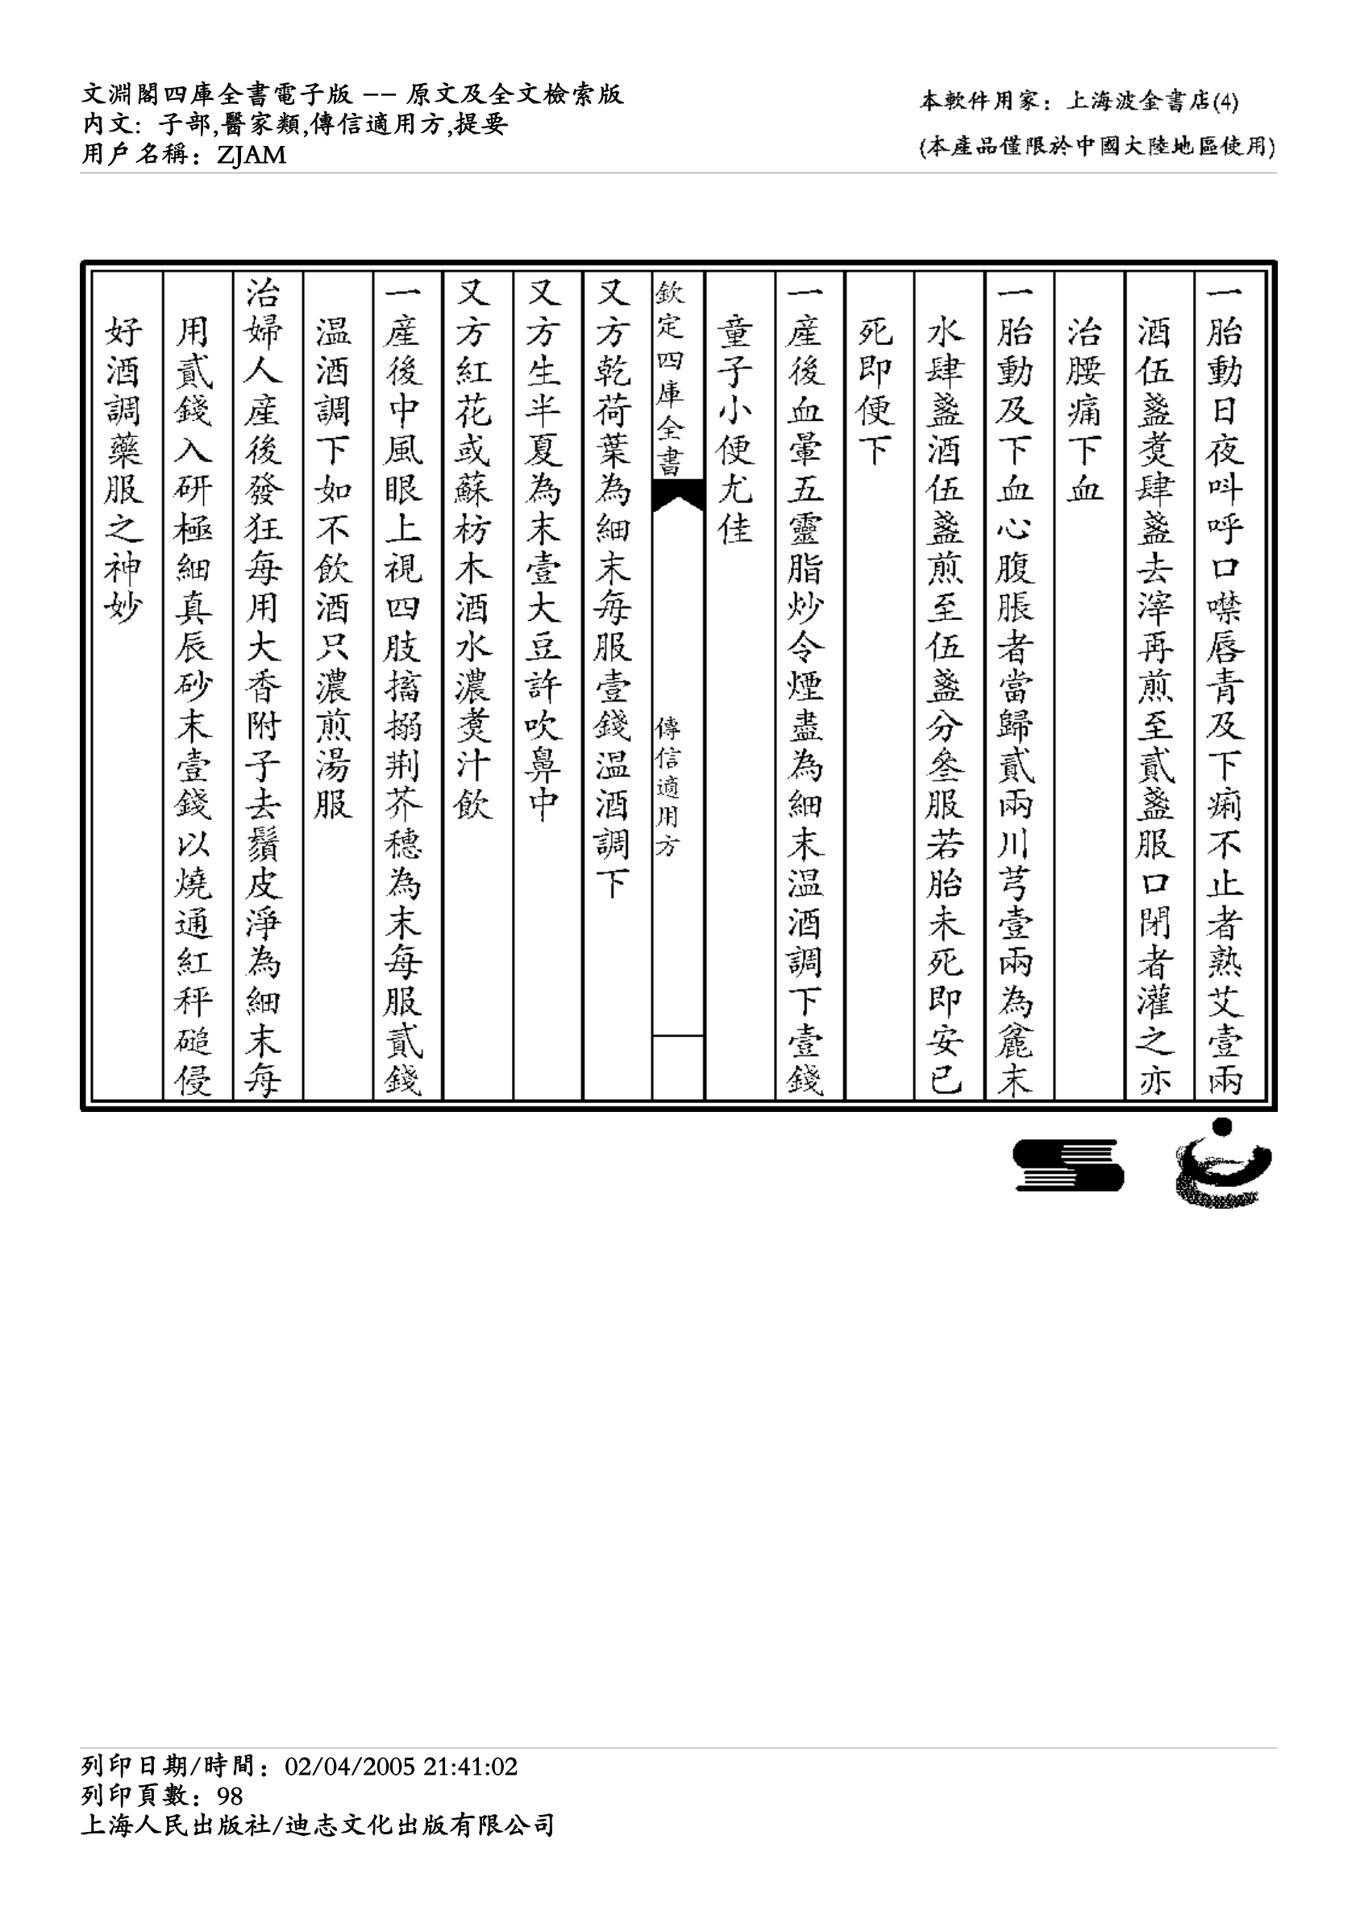 文淵閣四庫全書電子版 -- 原文及全文檢索版
内文: 子部,醫家類,傳信適用方,提要
用戶名稱: ZJAM
本軟件用家: 上海波金書店(4)
(本產品僅限於中國大陸地區使用)
一胎動日夜呌呼口噤唇青及下痢不止者熟艾壹兩
酒伍盞煑肆盞去滓再煎至貳盞服口閉者灌之亦
治腰痛下血
一胎動及下血心腹脹者當歸貳兩川芎壹兩為麄末
水肆盞酒伍盞煎至伍盞分叄服若胎未死即安已
死即便下
一產後血暈五靈脂炒令煙盡為細末温酒調下壹錢
童子小便尤佳
欽定四庫全書
傳信適用方
又方乾荷葉為細末每服壹錢温酒調下
又方生半夏為末壹大豆許吹鼻中
又方紅花或蘇枋木酒水濃煑汁飲
一產後中風眼上視四肢搐搦荆芥穗為末每服貳錢
温酒調下如不飲酒只濃煎湯服
治婦人產後發狂每用大香附子去鬚皮淨為細末每
用貳錢入研極細真辰砂末壹錢以燒通紅秤磓侵
好酒調藥服之神妙
列印日期/時間: 02/04/2005 21:41:02
列印頁數: 98
上海人民出版社/迪志文化出版有限公司